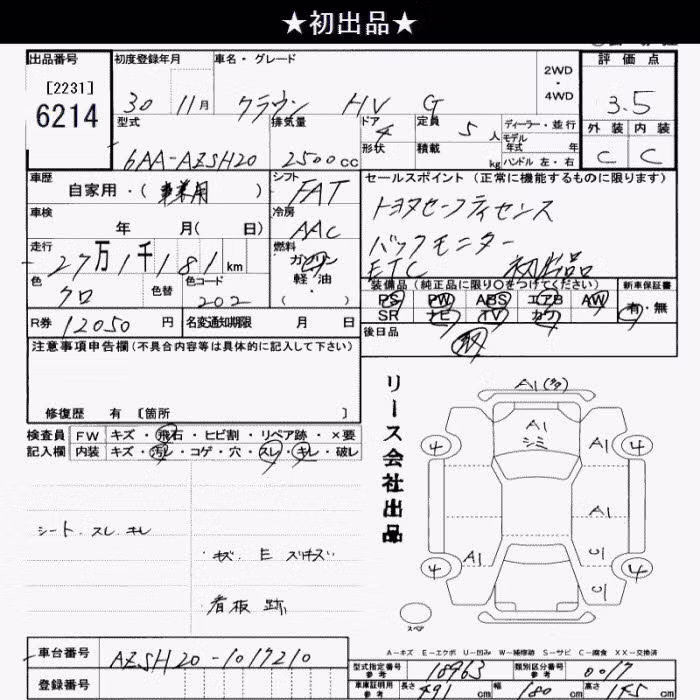 ★初出品★
出品番号 初度登録年月 車名・グレード 2WD・4WD 評価点
[2231]
6214
30 11月 クラウン HV G 3.5
型式 排気量 ドア 4 定員 5人 ディーラー・並行 外装 内装
形状 積載 kg モデル年式 年 ハンドル 左・右
6AA-AZSH20 2500cc C C
車歴 自家用・(事業用) シフト FAT セールスポイント (正常に機能するものに限ります)
車検 年 月(日) 冷房 AAC トヨタセーフティセンス
走行 27万1千181km 燃料 ガソリン・軽油・( ) バックモニター
ETC 初出品
色 クロ 色替 色コード 202
装備品 (純正品に限り〇をつけてください) 新車保証書
PS PW ABS エアB AW
SR ナビ TV カワ 有・無
R券 12050円 名変通知期限 月 日 後日品
注意事項申告欄 (不具合内容等は具体的に記入して下さい)
修復歴 有 〔箇所 〕
検査員記入欄
FW キズ・飛石・ヒビ割・リペア跡・×要
内装 キズ・汚レ・コゲ・穴・スレ・キレ・破レ
シート.スレ.キレ
キズ.E スリキズ
看板跡
リース会社出品
A1
A1
シミ
4 A1 4
A1
A1 U1
4 U1 4
スペア
A-キズ E-エクボ U-凹み W-補修跡 S-サビ C-腐食 XX-交換済
車台番号 AZSH20-1017210
登録番号
型式指定番号 参考 18963 類別区分番号 参考 0017
車庫証明用 参考 長さ 491cm 幅 180cm 高さ 145cm